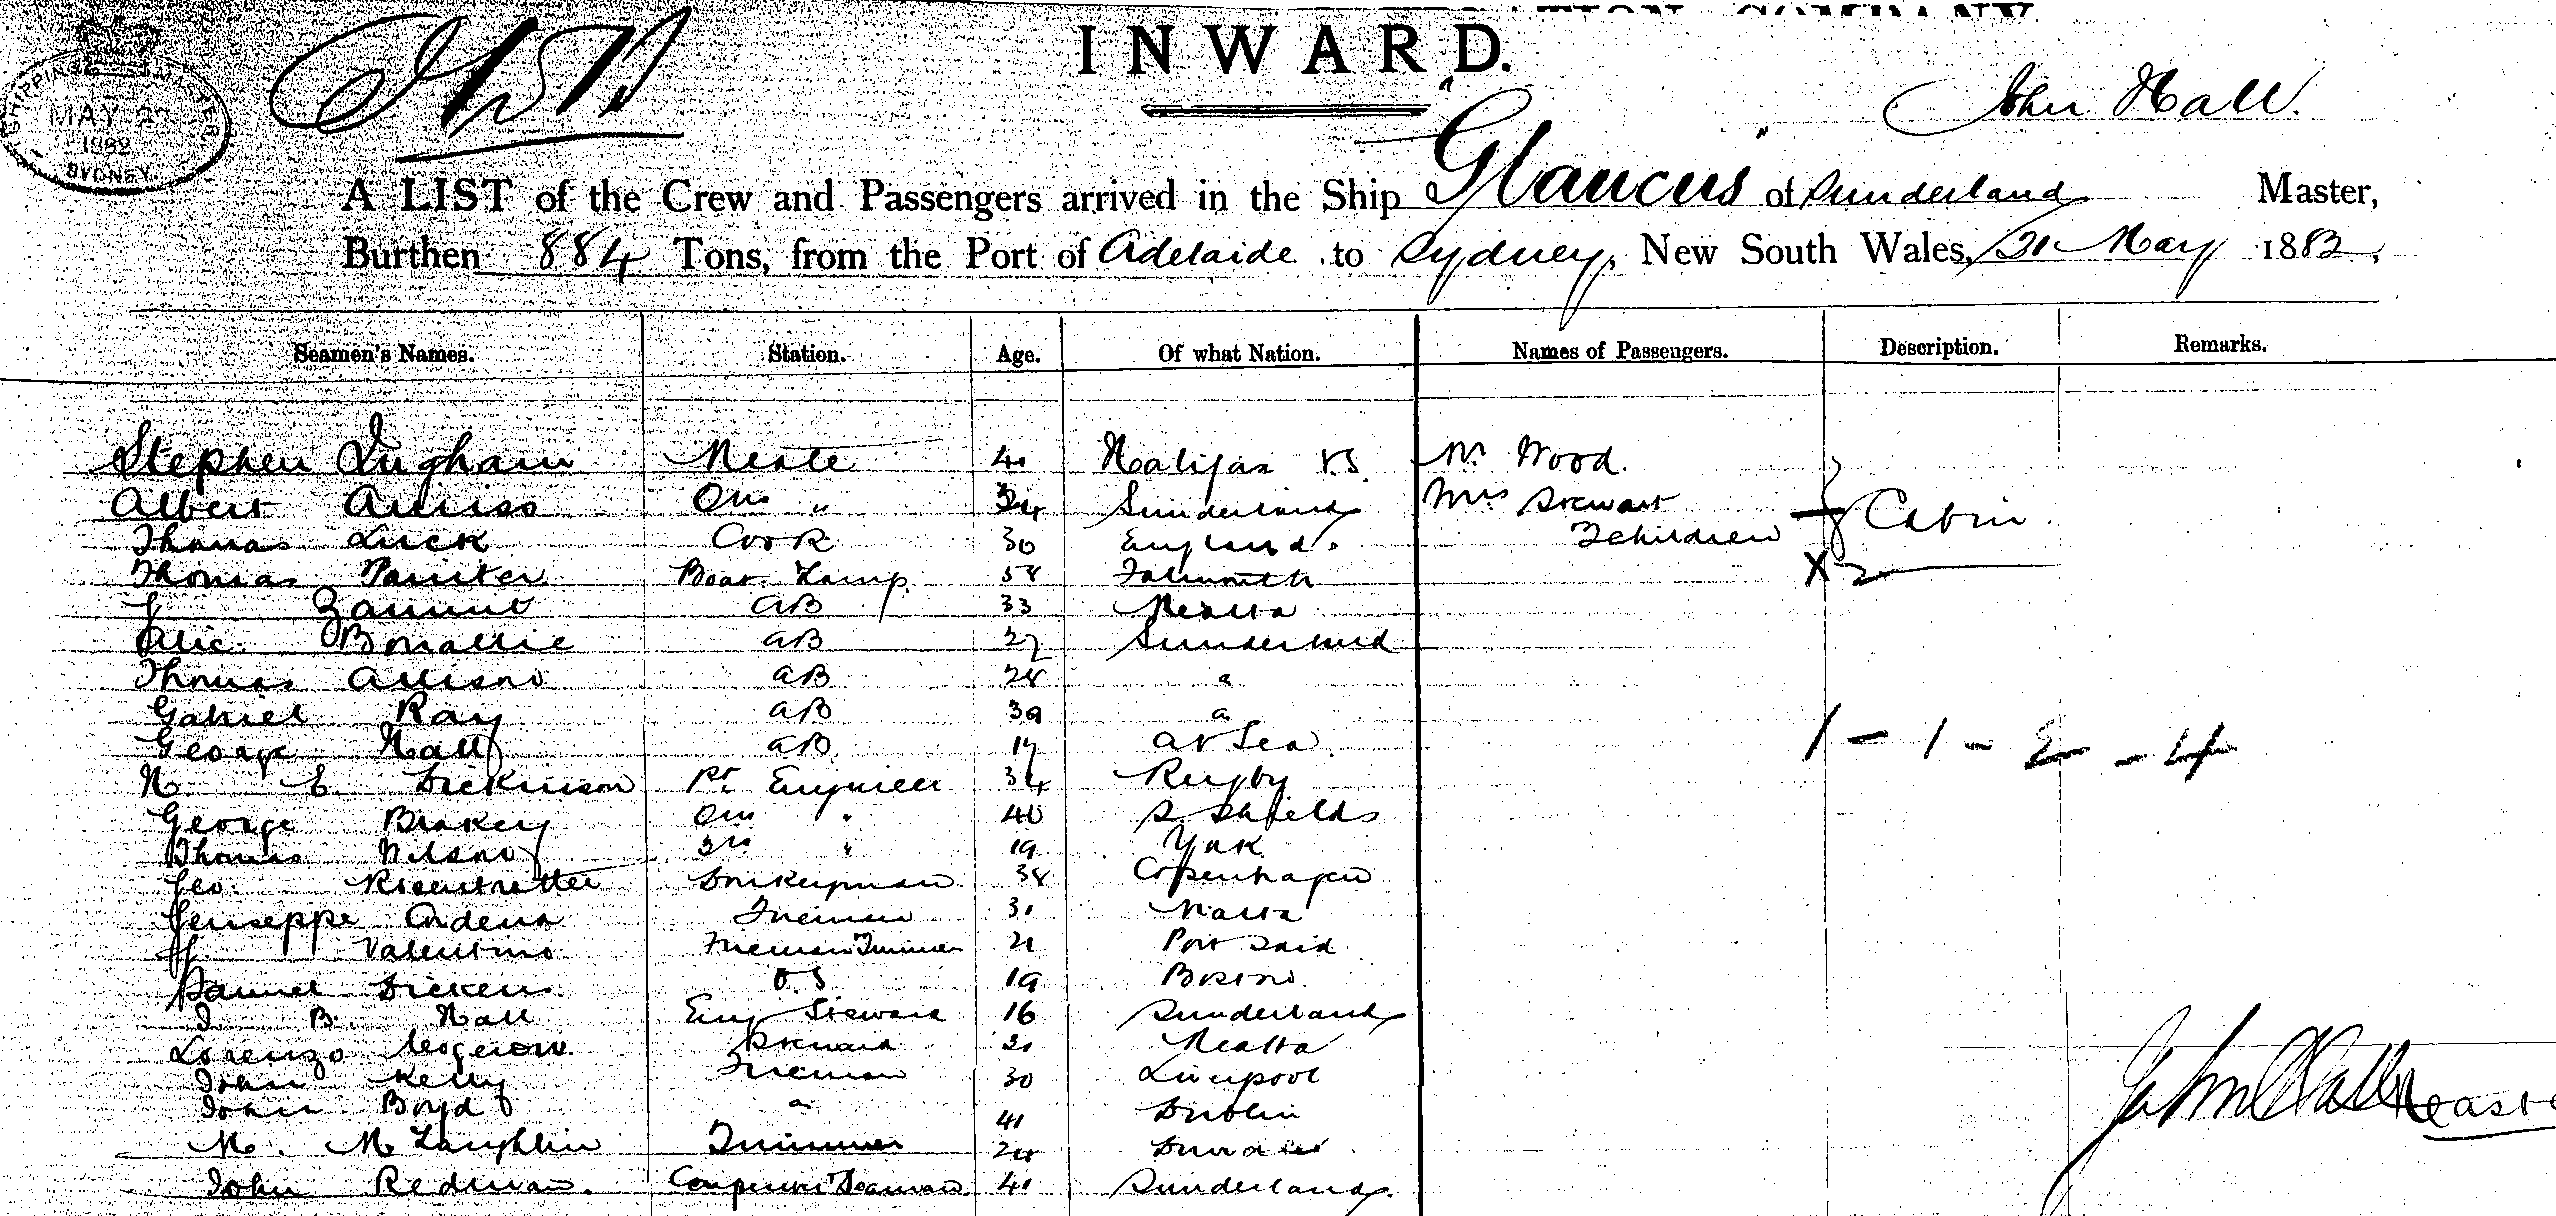 INWARD.
SHIPPING
MAY 2
1882
SYDNEY.
John Hall.
A LIST of the Crew and Passengers arrived in the Ship "Glaucus" of Sunderland Master,
Burthen 884 Tons, from the Port of Adelaide to Sydney, New South Wales, 21 May 1882.
Seamen's Names. Station. Age. Of what Nation. Names of Passengers. Description. Remarks.
Stephen Ingham Mate 41 Halifax NS Mr Wood.
Albert 2nd " 24 Sunderland Mrs Stewart
Thomas Luck Cook 30 England. 2 children Cabin
Thomas Painter Boat. Lamp. 54 Falmouth X 2
J Zammit AB 33 Malta
Alic. AB 27 Sunderland
Thomas Allison AB 28 "
Gabriel Ray AB 39 "
George Hall AB 17 at Sea 1 - 1 - 2 - 4
H. E. Dickinson 1st Engineer 34 Rugby
George 2nd " 40 S Shields
Thomas Wilson 3rd " 19 York
Geo. Donkeyman 38 Copenhagen
Guiseppe Fireman 31 Malta
Valentino Fireman Trimmer 21 Port Said
Samuel Dickens O.S 19 Boston
J B. Hall Eng Steward 16 Sunderland
Lorenzo Steward 21 Malta
John Kelly Fireman 30 Liverpool
John Boyd " 41 Dublin John Hall Master
M. McLaughlin Trimmer 24 Dundee
John Redman. Seaman 41 Sunderland